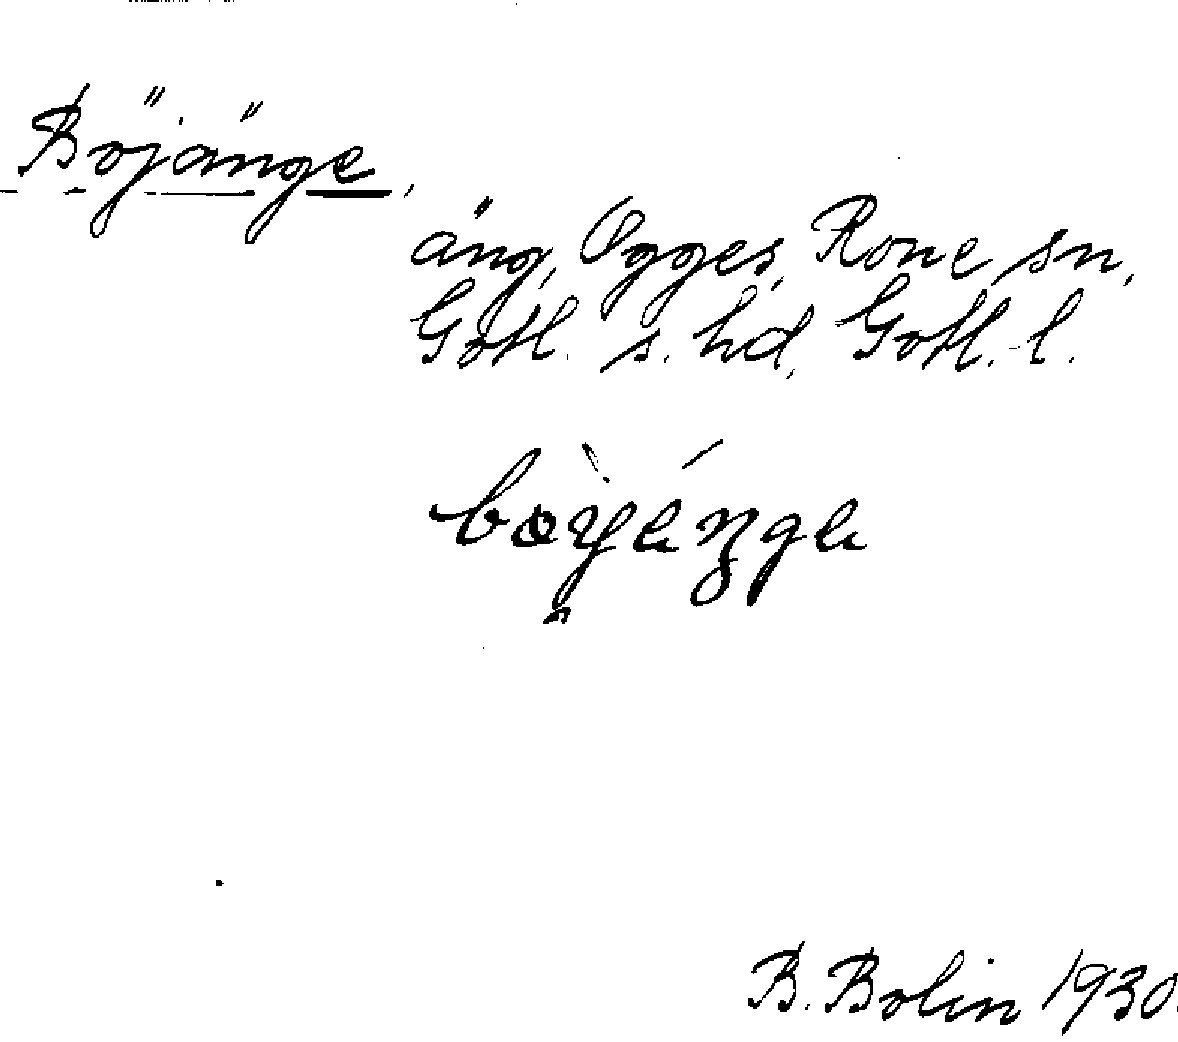 Böjänge,
äng, Ogges, Rone sn,
Gotl. s. hd, Gotl. l.
B. Bolin 1930.